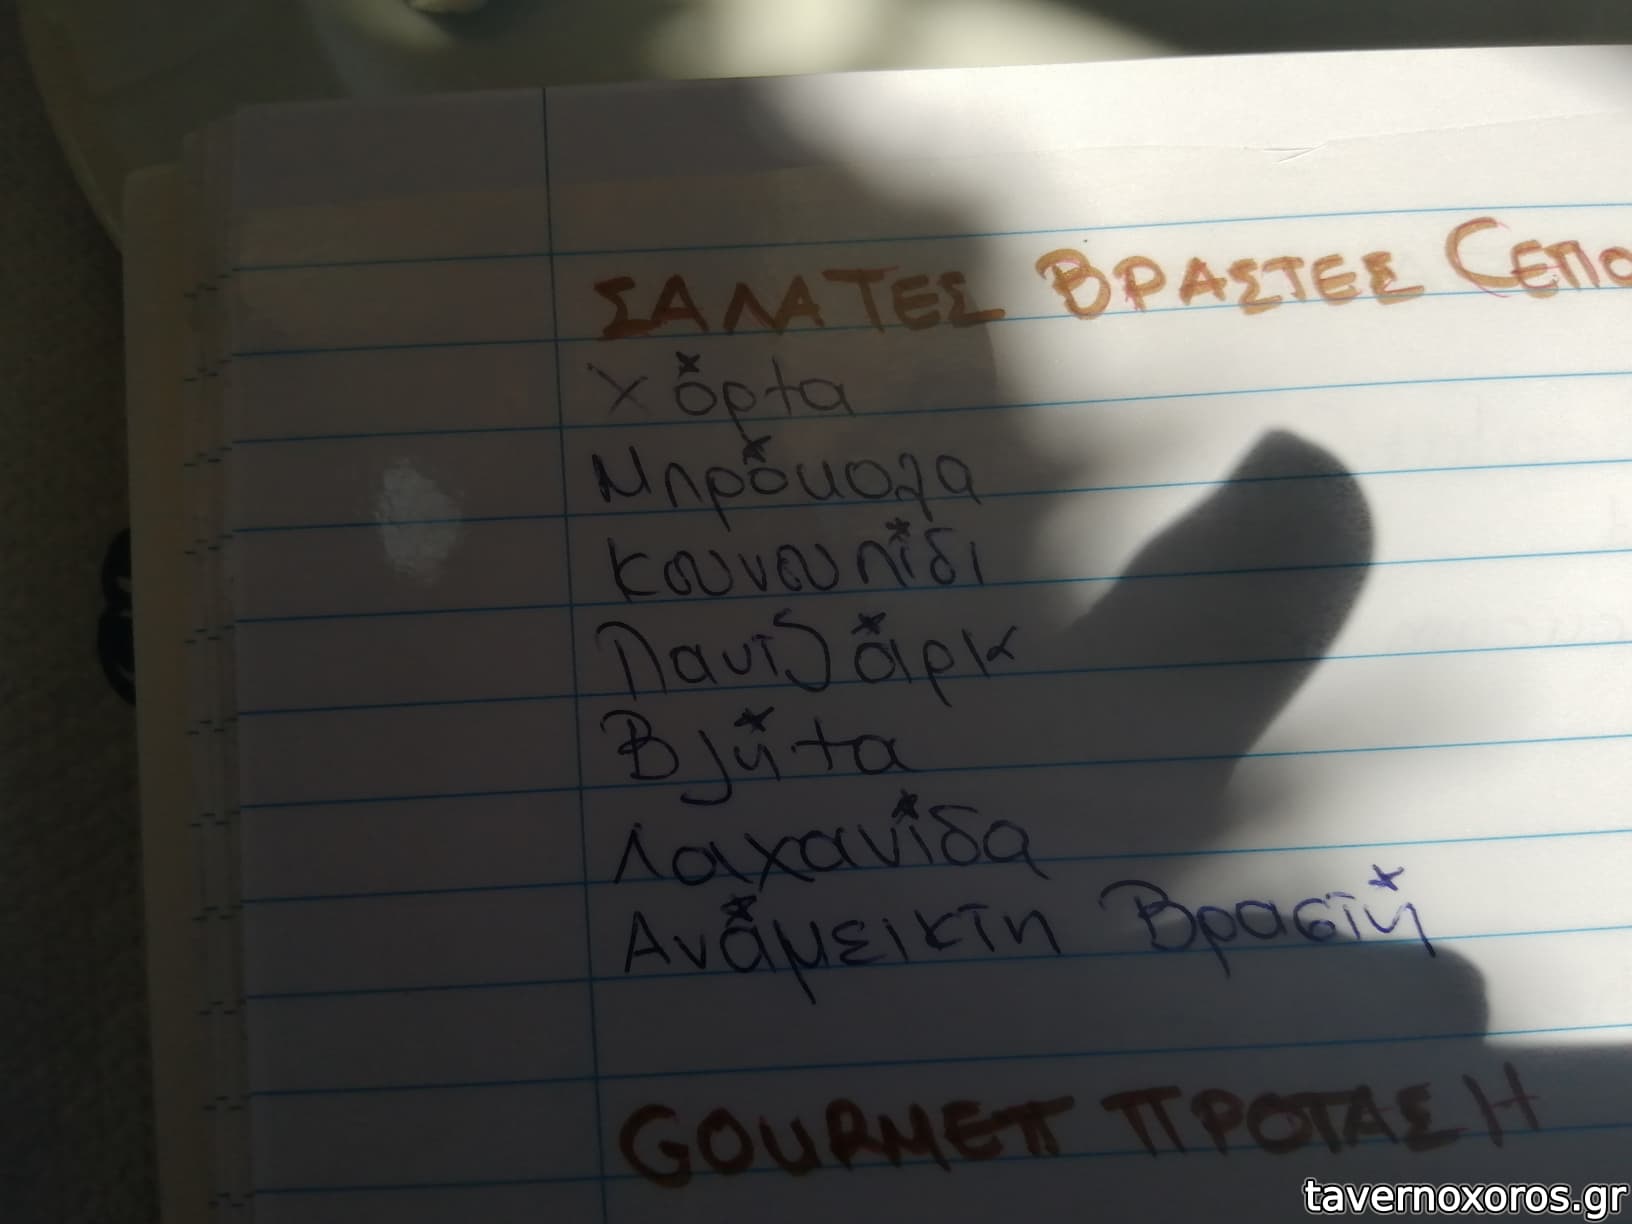 ΣΑΛΑΤΕΣ ΒΡΑΣΤΕΣ (ΕΠΟ
Χόρτα
Μπρόκολα
Κουνουπίδι
Παντζάρια
Βλήτα
Λαχανίδα
Ανάμεικτη Βραστή
GOURMET ΠΡΟΤΑΣΗ
tavernoxoros.gr